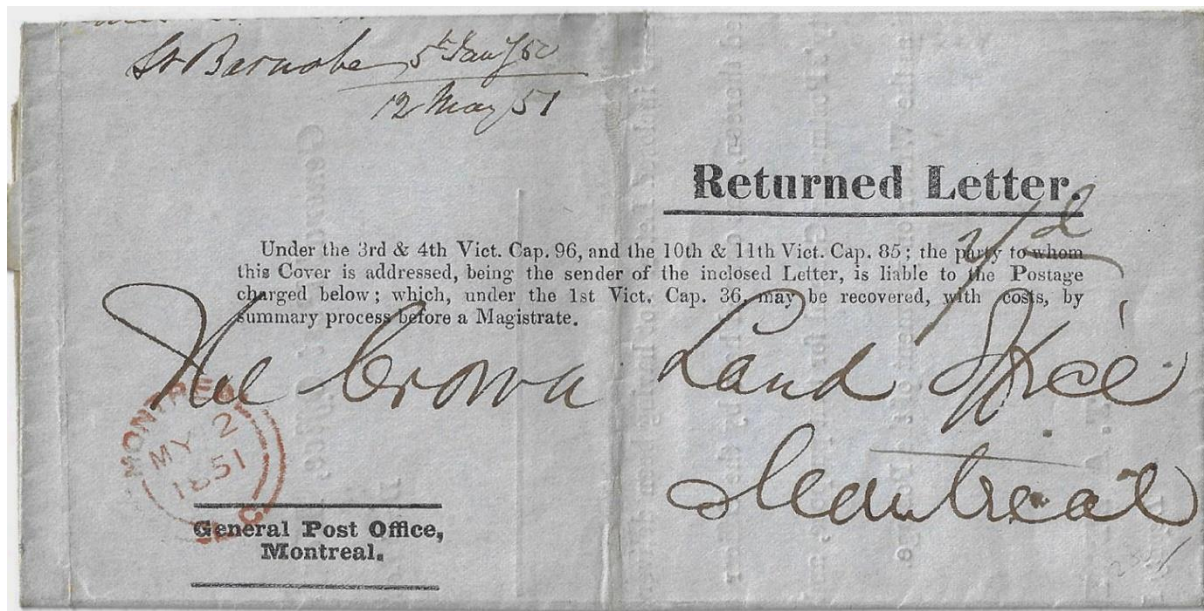 St Barnabe 5th Jany 50
12 May 51
Returned Letter.
Under the 3rd & 4th Vict. Cap. 96, and the 10th & 11th Vict. Cap. 85; the party to whom
this Cover is addressed, being the sender of the inclosed Letter, is liable to the Postage
charged below; which, under the 1st Vict. Cap. 36, may be recovered, with costs, by
summary process before a Magistrate.
The Crown Land Office
Montreal
MONTREAL
MY 2
1851
L.C.
General Post Office,
Montreal.